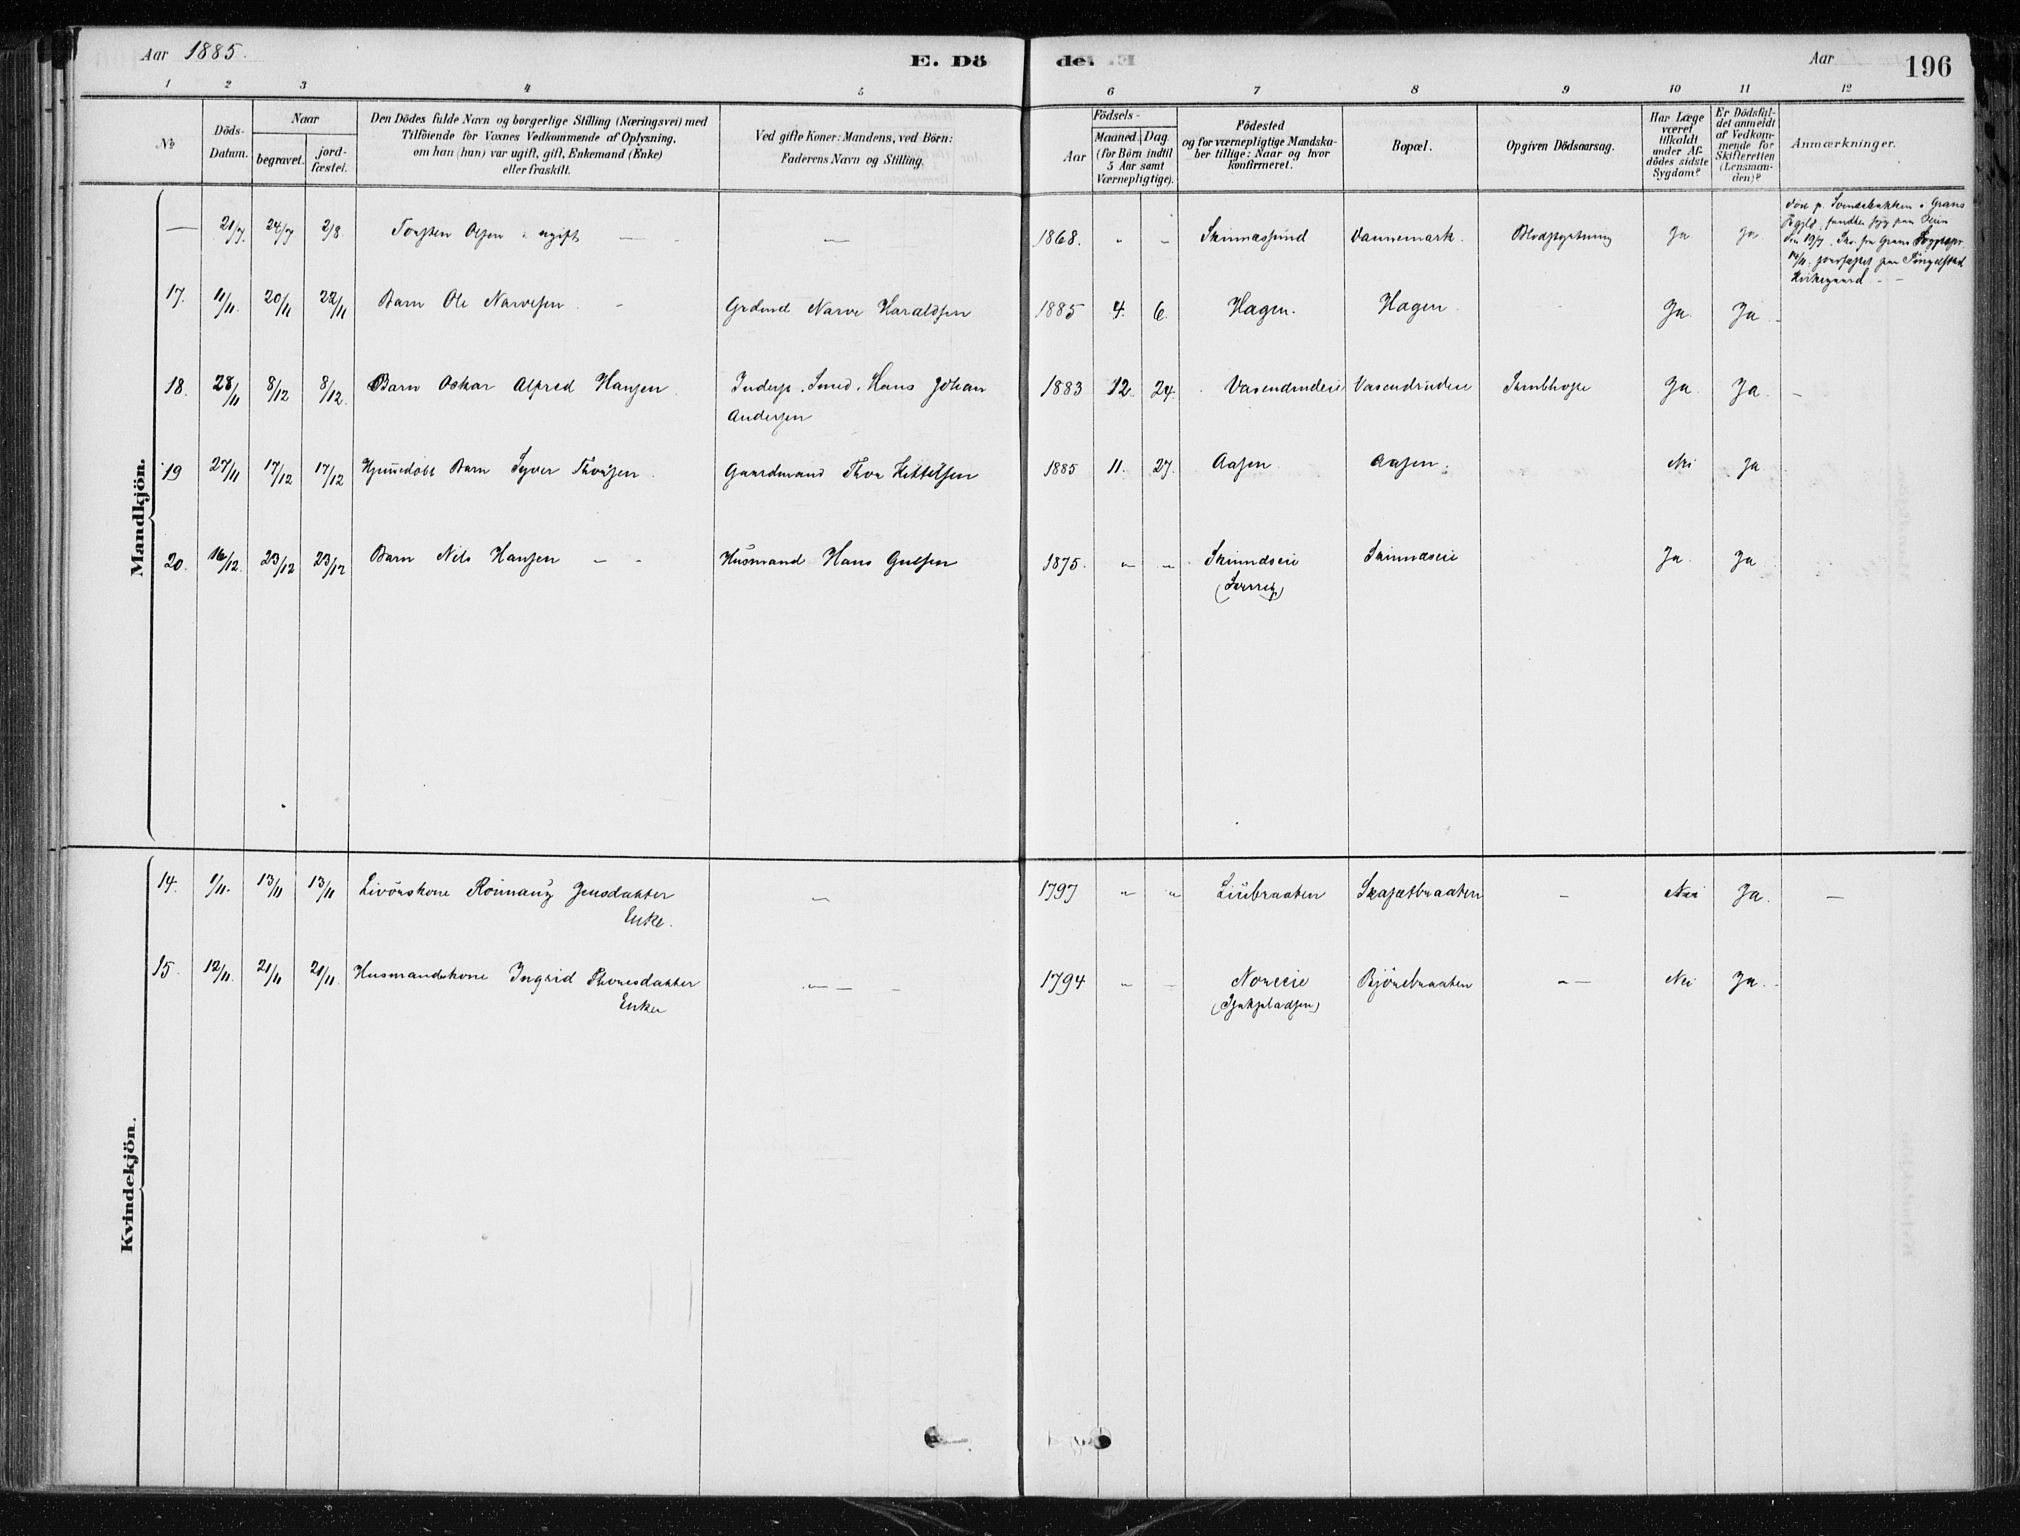 Aar 1885.
E. Dö
de.
Aar
196
1 2 3 4 5 6 7 8 9 10 11 12
No
Döds-
Datum.
Naar
begravet.
jord-
fæstet.
Den Dödes fulde Navn og borgerlige Stilling (Næringsvei) med
Tilföiende for Voxnes Vedkommende af Oplysning,
om han (hun) var ugift, gift, Enkemand (Enke)
eller fraskilt.
Ved gifte Koner: Mandens, ved Börn:
Faderens Navn og Stilling.
Födsels-
Aar
Maaned. Dag.
(for Börn indtil
5 Aar samt
Værnepligtige).
Födested
og for værnepligtige Mandska-
ber tillige: Naar og hvor
konfirmeret.
Bopæl.
Opgiven Dödsaarsag.
Har Læge
været
tilkaldt
under Af-
dödes sidste
Sygdom?
Er Dödsfal-
det anmeldt
af Vedkom-
mende for
Skifteretten
(Lensman-
den)?
Anmærkninger.
Mandkjön.
— 21/7. 24/7 2/8. Torsten Olsen ugift — — — 1868. " - Skinnæssund Vannemark. Blodstyrtning Ja Ja
Døde p. Svenæbakken i Grans
Prgjld, fundtes syg paa Veien
den 19/7.
jordfæstet paa Tingelstad
Kirkegaard
17. 11/11. 20/11 22/11 Barn Ole Narvesen. - Grdmd Narve Haraldsen 1885 4. 6. Hagen. Hagen. Ja. Ja. -
18. 28/11 8/12 8/12. Barn Oskar Alfred Hansen Inders. Smed. Hans Johan
Andersen
1883 12. 24. Vasendrudeie Vasendrudeie Strubhoste Ja. Ja. -
19 27/11 17/12 17/12 Hjemmedøbt Barn Syver Thorsen. Gaardmand Thor Kittelsen 1885 11. 27. Aasen. Aasen. Nei Ja
20. 16/12. 23/12 23/12 Barn Nils Hansen - - Husmand Hans Gulsen 1875. " " Skinnæseie Skinnæseie Ja. Ja.
Kvindekjön.
14. 1/11. 13/11 13/11 Livörskone Jensdatter
Enke.
" 1797 " " Liubraaten Skafætbraaten - Nei Ja. -
15. 12/11. 21/11 21/11. Husmandskone Ingrid Thoresdatter
Enke
" — - 1794 " - Noreeie Bjönebraaten " — Nei Ja. -